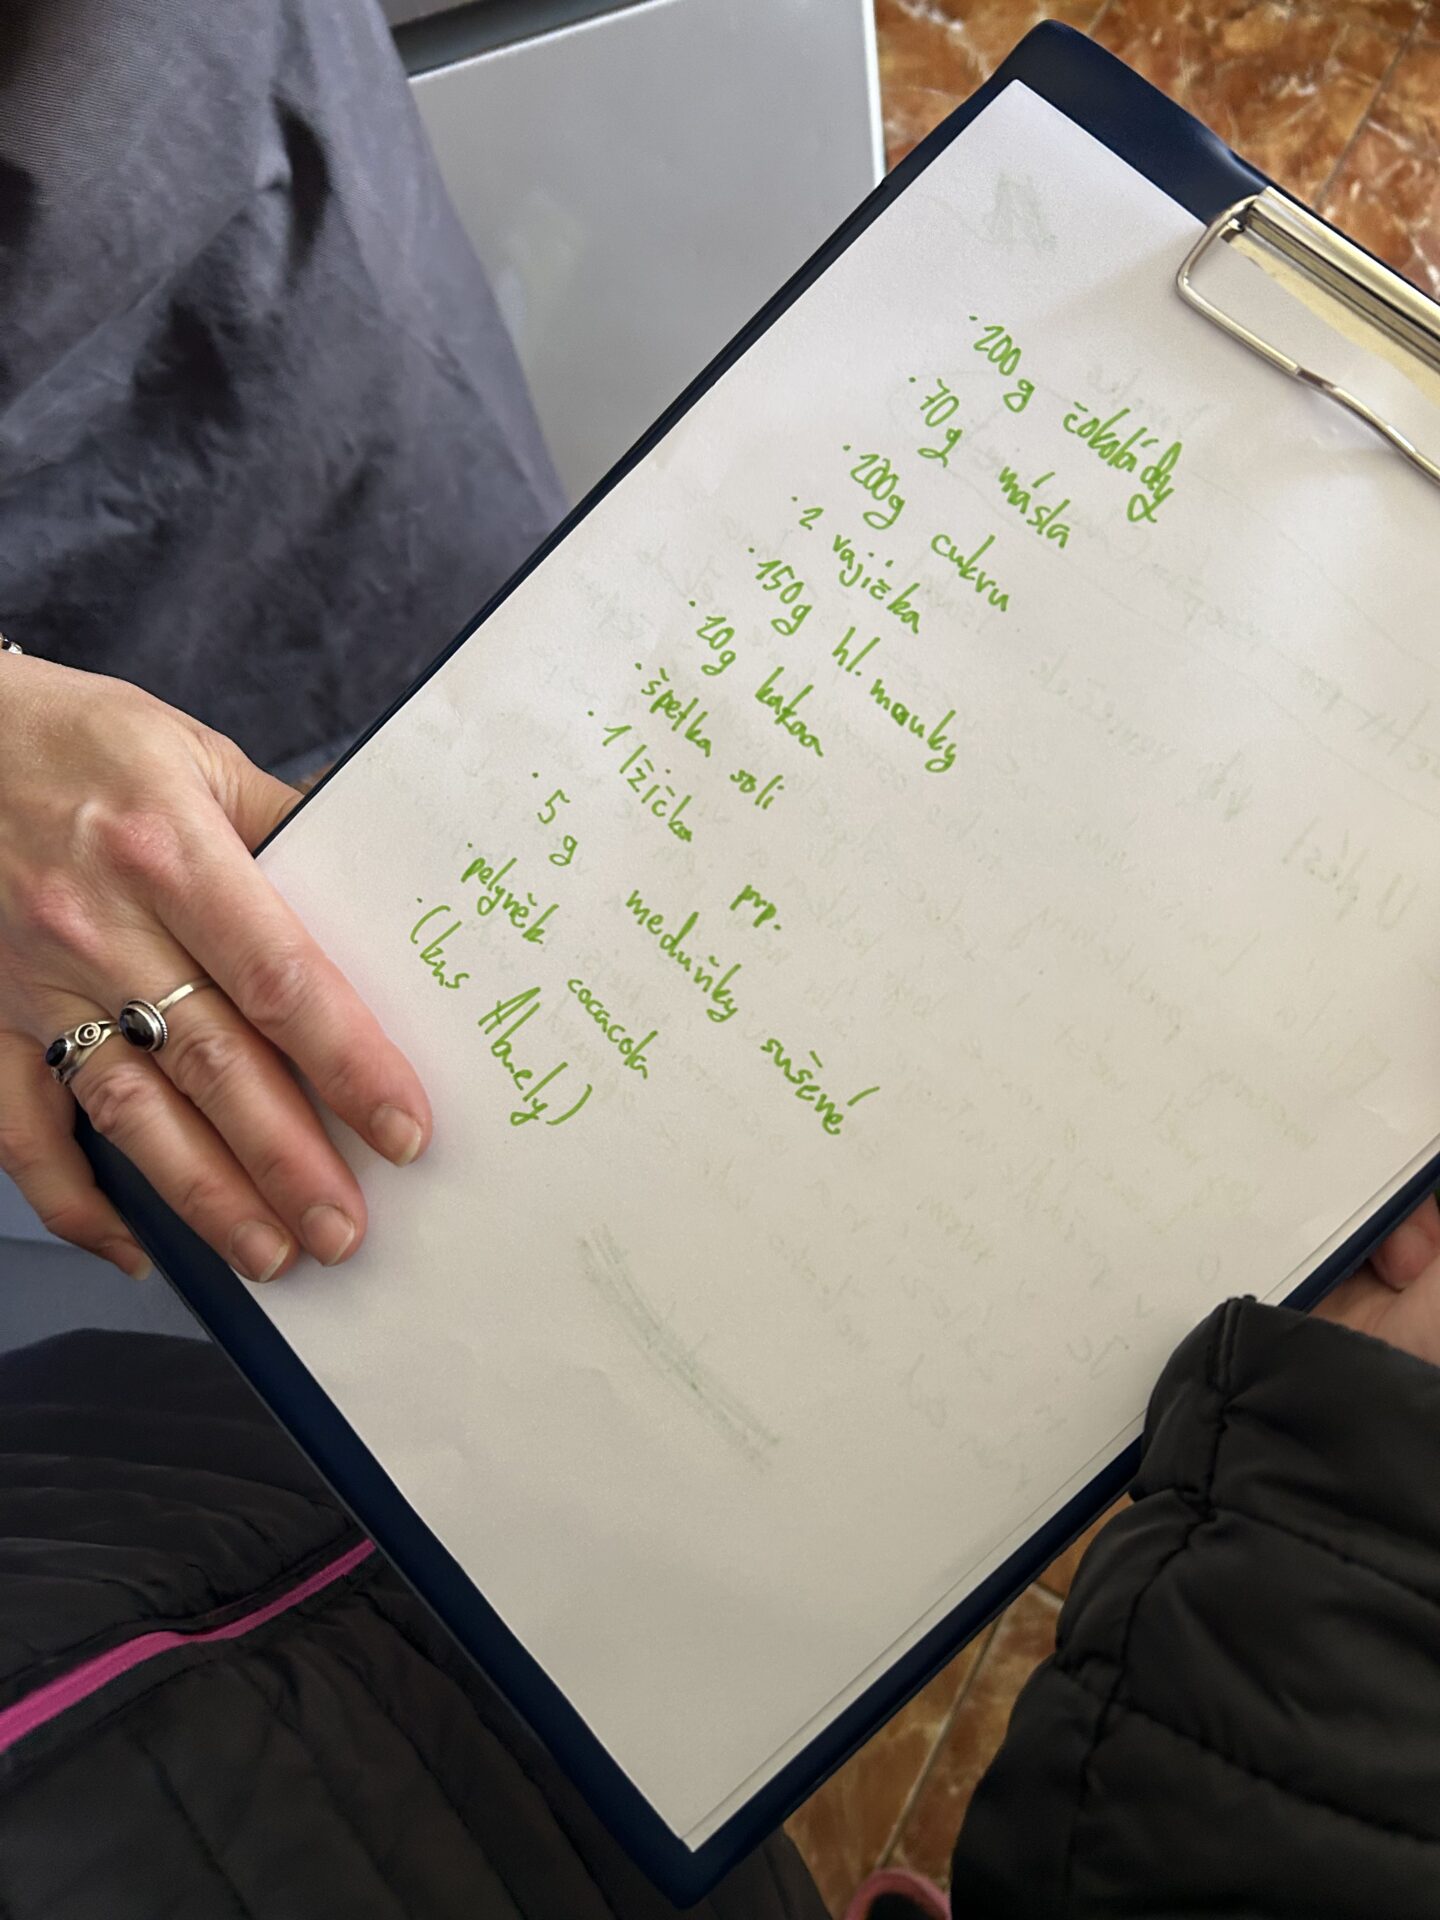 · 200 g čokolády
· 70 g másla
· 200g cukru
· 2 vajíčka
· 150g hl. mouky
· 20g kakaa
· špetka soli
· 1 lžička prp.
· 5 g meduňky sušené
· pelyněk cocacola
· (kus Abnely)